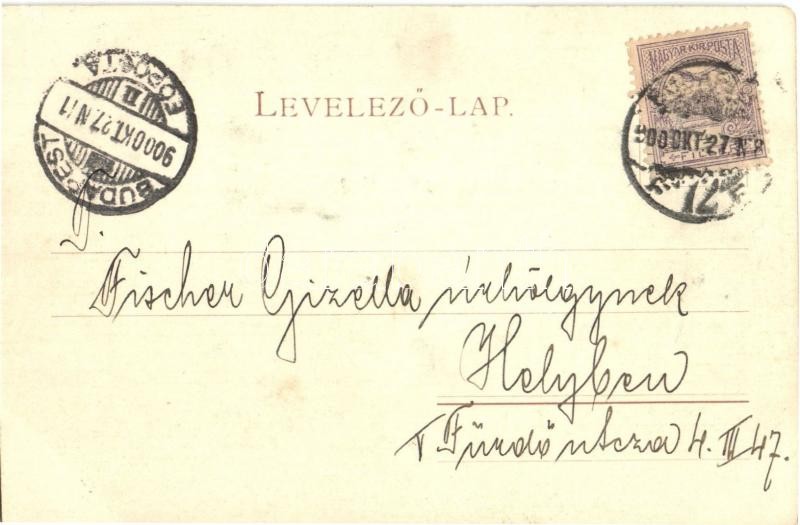 LEVELEZŐ-LAP.
MAGYAR KIR. POSTA
900 OKT. 27. N 8
72
BUDAPEST
900 OKT. 27. N 11
FŐPOSTA
Fischer Gizella úrhölgynek
Helyben
V Fürdő utcza 4. III 47.